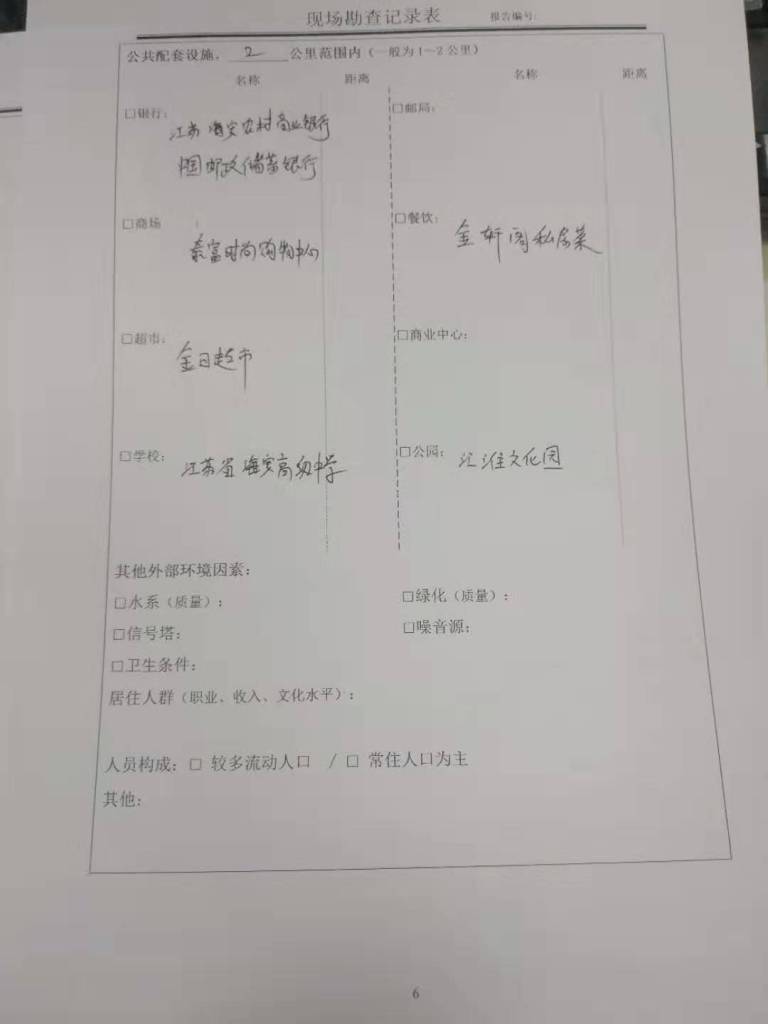 现场勘查记录表 报告编号:
公共配套设施，2公里范围内（一般为1～2公里）
名称 距离 名称 距离
□银行： □邮局：
江苏海安农村商业银行
中国邮政储蓄银行
□商场： □餐饮：
富时尚购物中心 金轩阁私房菜
□超市： □商业中心：
金日超市
□学校： 江苏省海安高级中学 □公园： 江淮文化园
其他外部环境因素：
□水系（质量）： □绿化（质量）：
□信号塔： □噪音源：
□卫生条件：
居住人群（职业、收入、文化水平）：
人员构成：□ 较多流动人口 / □ 常住人口为主
其他：
6